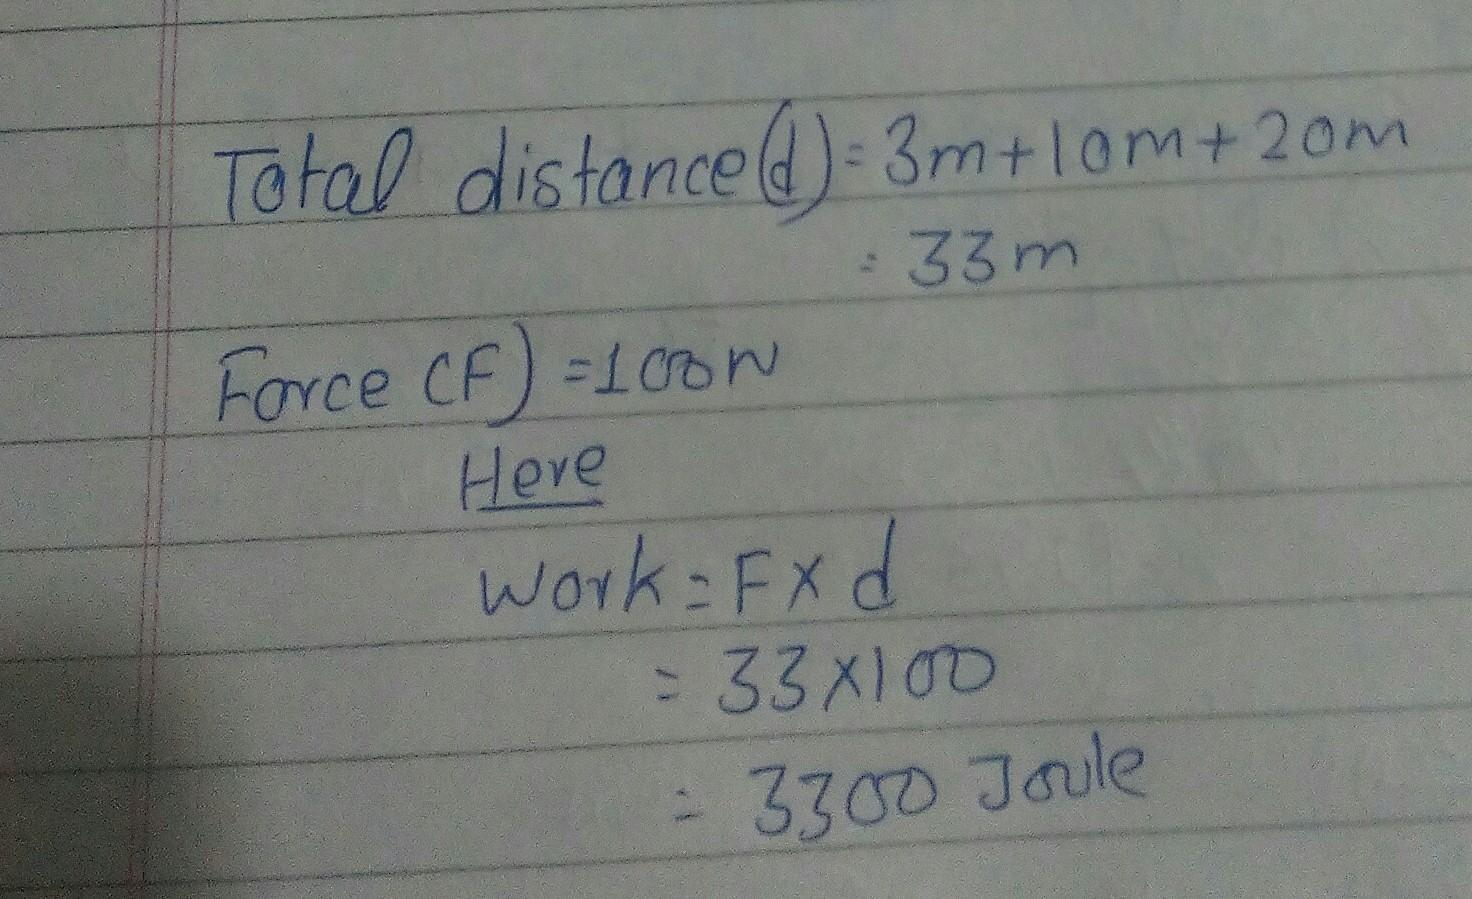 Total distance(d) = 3m + 10m + 20m
= 33m
Force (F) = 100N
Here
Work = F × d
= 33 × 100
= 3300 Joule